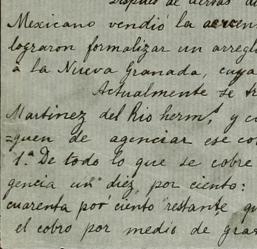 Despues de varias de
Mexicano vendió la acreen
lograron formalizar un arregl
á la Nueva Granada, cuya
Actualmente se tr
Martinez del Rio herms. y c
=guen de agenciar ese co
1.ª De todo lo que se cobre
gencia un diez por ciento:
cuarenta por ciento restante qu
el cobro por medio de gra